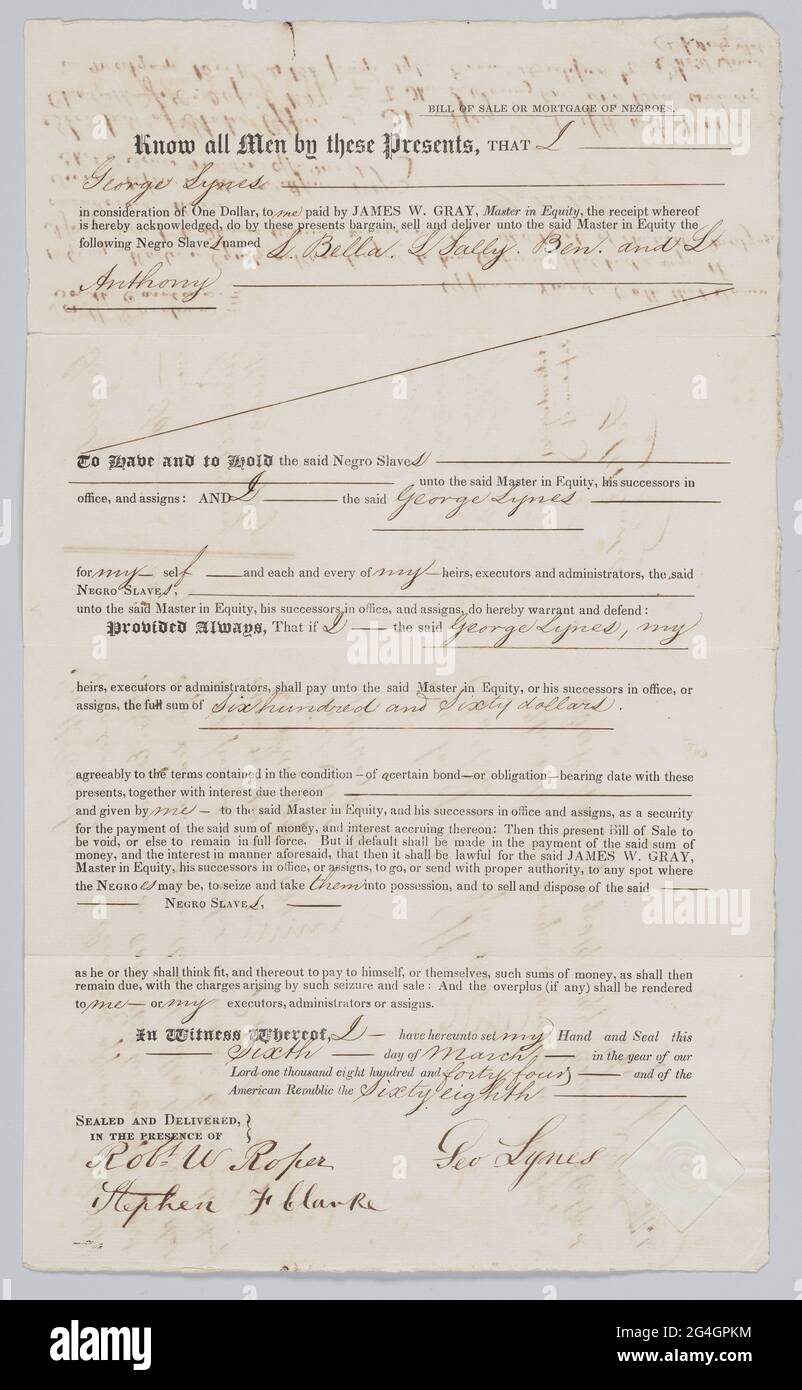 BILL OF SALE OR MORTGAGE OF NEGROES.
Know all Men by these Presents, THAT I
George Lynes
in consideration of One Dollar, to me paid by JAMES W. GRAY, Master in Equity, the receipt whereof
is hereby acknowledged, do by these presents bargain, sell and deliver unto the said Master in Equity the
following Negro Slaves named L. Bella. L Sally. Ben. and L
Anthony
To Have and to Hold the said Negro Slaves
unto the said Master in Equity, his successors in
office, and assigns: AND I the said George Lynes
for my self and each and every of my heirs, executors and administrators, the said
NEGRO SLAVES,
unto the said Master in Equity, his successors in office, and assigns, do hereby warrant and defend:
Provided Always, That if I the said George Lynes, my
heirs, executors or administrators, shall pay unto the said Master in Equity, or his successors in office, or
assigns, the full sum of Six hundred and Sixty dollars.
agreeably to the terms contained in the condition—of a certain bond—or obligation—bearing date with these
presents, together with interest due thereon
and given by me to the said Master in Equity, and his successors in office and assigns, as a security
for the payment of the said sum of money, and interest accruing thereon: Then this present Bill of Sale to
be void, or else to remain in full force. But if default shall be made in the payment of the said sum of
money, and the interest in manner aforesaid, that then it shall be lawful for the said JAMES W. GRAY,
Master in Equity, his successors in office, or assigns, to go, or send with proper authority, to any spot where
the NEGROes may be, to seize and take them into possession, and to sell and dispose of the said
NEGRO SLAVES,
as he or they shall think fit, and thereout to pay to himself, or themselves, such sums of money, as shall then
remain due, with the charges arising by such seizure and sale: And the overplus (if any) shall be rendered
to me or my executors, administrators or assigns.
In Witness Whereof, I have hereunto set my Hand and Seal this
Sixth day of March in the year of our
Lord one thousand eight hundred and forty four and of the
American Republic the Sixty eighth
SEALED AND DELIVERED,
IN THE PRESENCE OF
Robt. W Roper
Geo Lynes
Stephen F Clarke
alamy
Image ID: 2G4GPKM
www.alamy.com